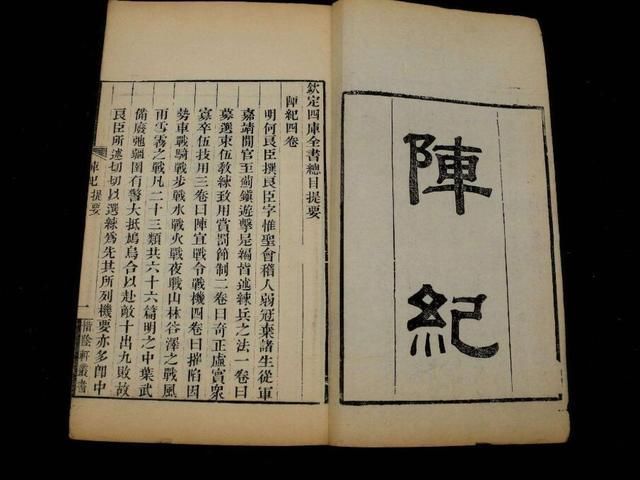 陣紀
欽定四庫全書總目提要
陣紀四卷
明何良臣撰良臣字惟聖會稽人弱冠棄諸生從軍
嘉靖間官至薊鎮遊擊是編皆述練兵之法一卷曰
募選束伍教練致用賞罰節制二卷曰奇正虛實衆
寡卒伍技用三卷曰陣宜戰令戰機四卷曰摧陷因
勢車戰騎戰步戰水戰火戰夜戰山林谷澤之戰風
雨雪霧之戰凡二十三類共六十六篇明之中葉武
備廢弛疆圉有警大抵鳩烏合以赴敵十出九敗故
良臣所述切切以選練爲先其所列機要亦多卽中
陣紀提要 一 惜陰軒叢書